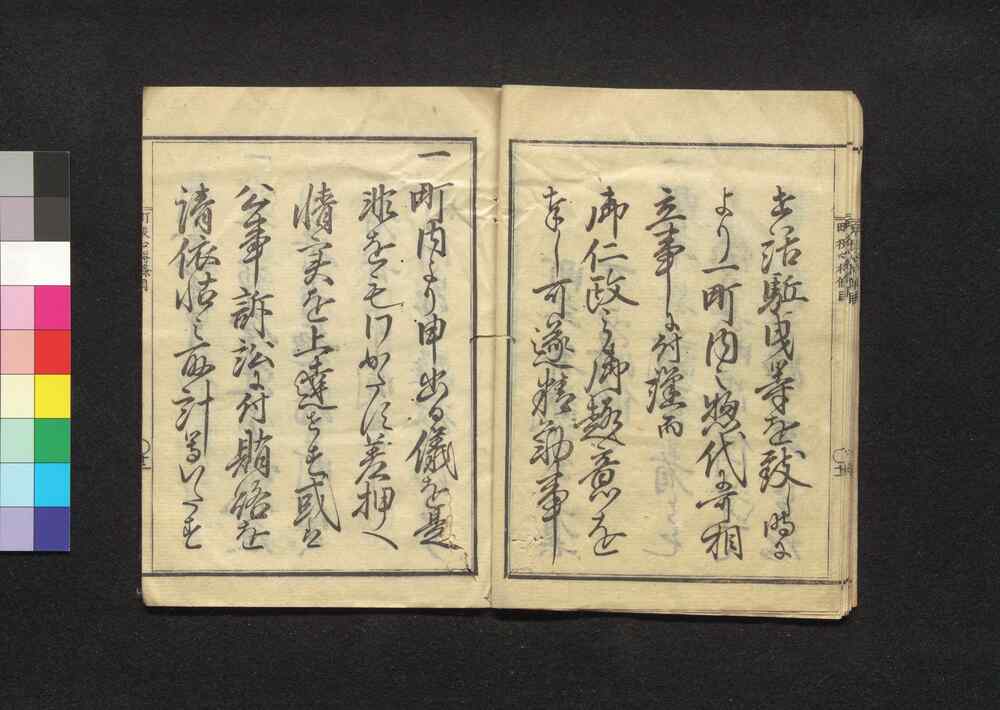 出活駈曳等を致し時に
より一町内之惣代ニ而相
立事ニ付謹而
御仁政之御趣意を
奉し可遂精勤事
一町内より申出る儀を是
非をもわかたす差押へ
情実を上達せす或は
公事訴訟ニ付賄賂を
請依怙之取計等いたす
町役心得条目